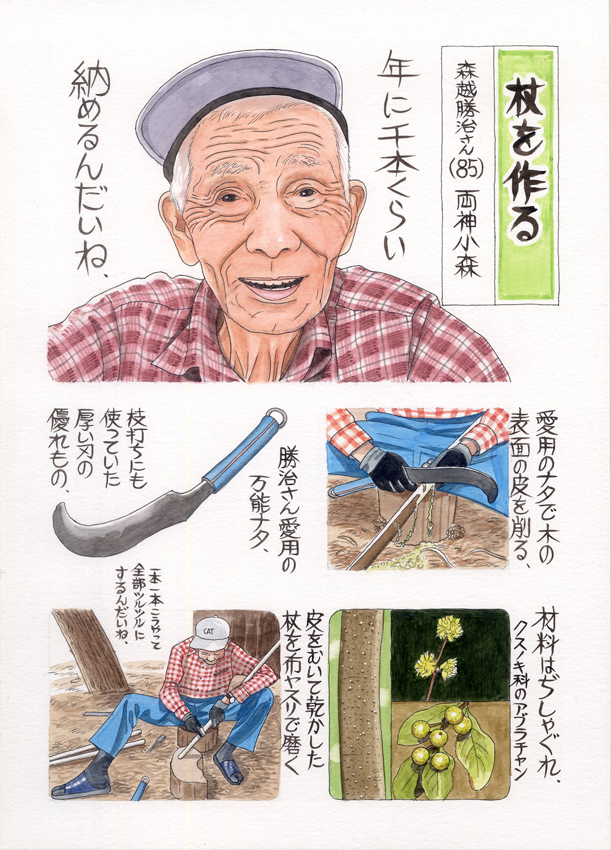 杖を作る
森越勝治さん(85) 両神小森
年に千本くらい
納めるんだいね、
愛用のナタで木の
表面の皮を削る、
勝治さん愛用の
万能ナタ、
枝打ちにも
使っていた
厚い刃の
優れもの、
材料はぢしゃぐれ、
クスノキ科のアブラチャン
皮をむいて乾かした
杖を布ヤスリで磨く
一本一本こうやって
全部ツルツルに
するんだいね、
CAT